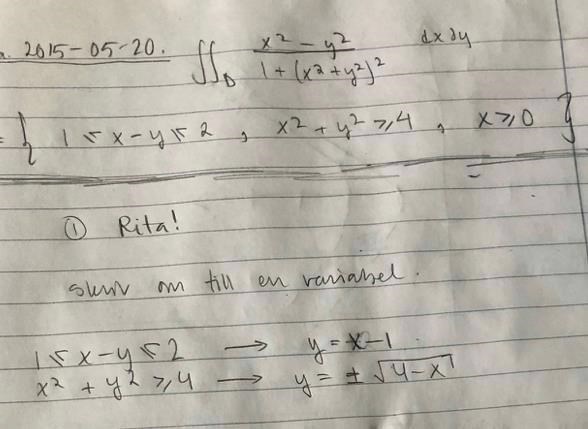 a. 2015-05-20. ∬_D (x² - y²)/(1 + (x² + y²)²) dxdy
= { 1 ≤ x - y ≤ 2 , x² + y² ≥ 4 , x ≥ 0 }
① Rita!
skriv om till en variabel.
1 ≤ x - y ≤ 2 → y = x - 1
x² + y² ≥ 4 → y = ± √(4 - x¹)